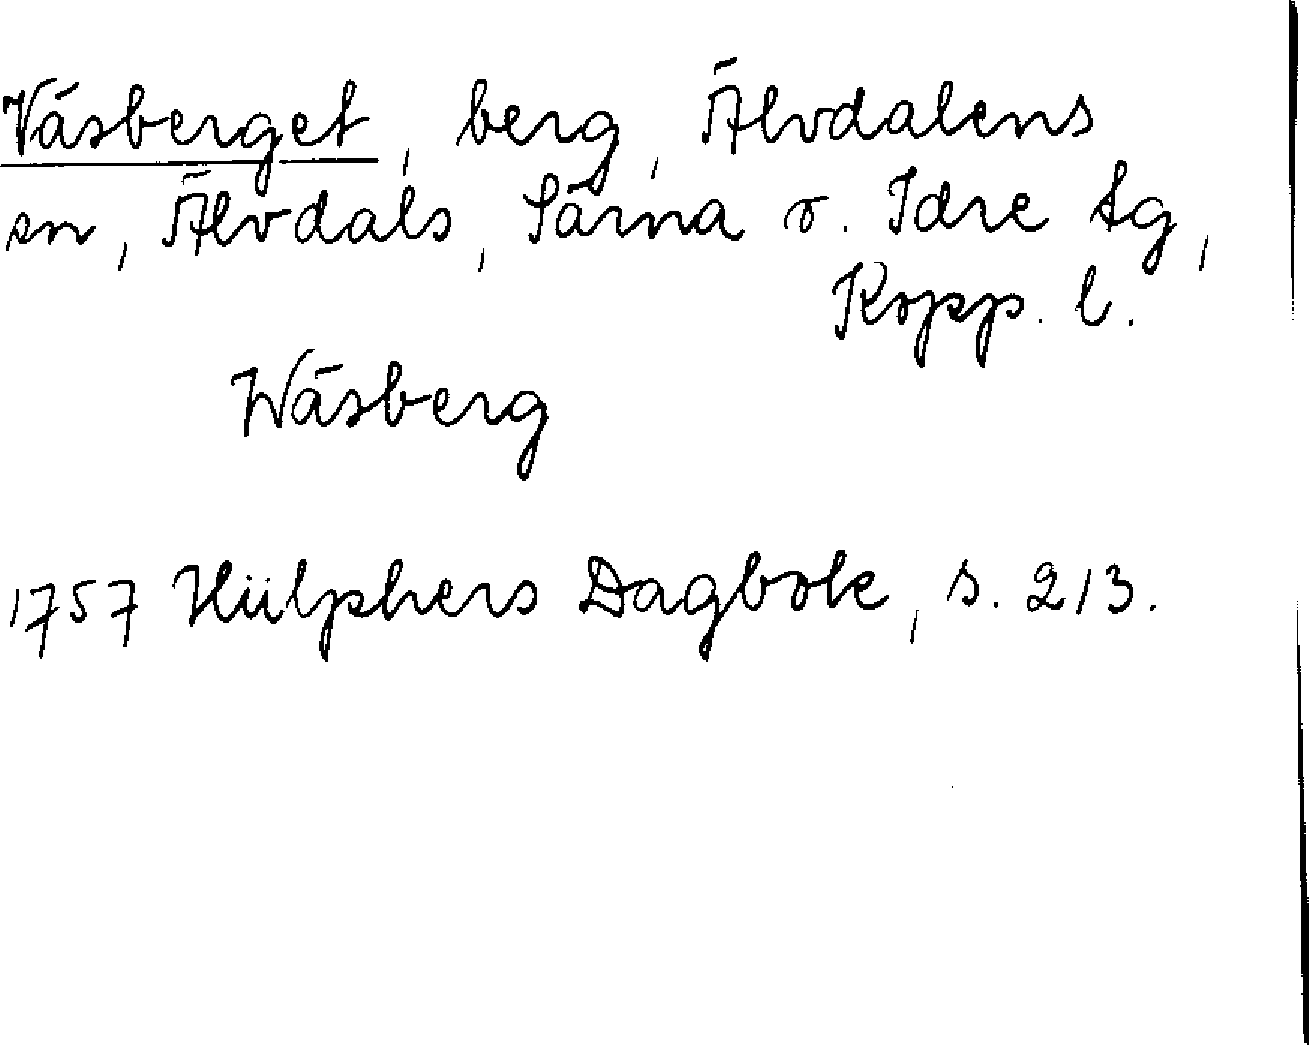 Väsberget, berg, Älvdalens
sn, Älvdals, Särna o. Idre tg,
Kopp. l.
Wäsberg
1757 Hülphers Dagbok, s. 213.